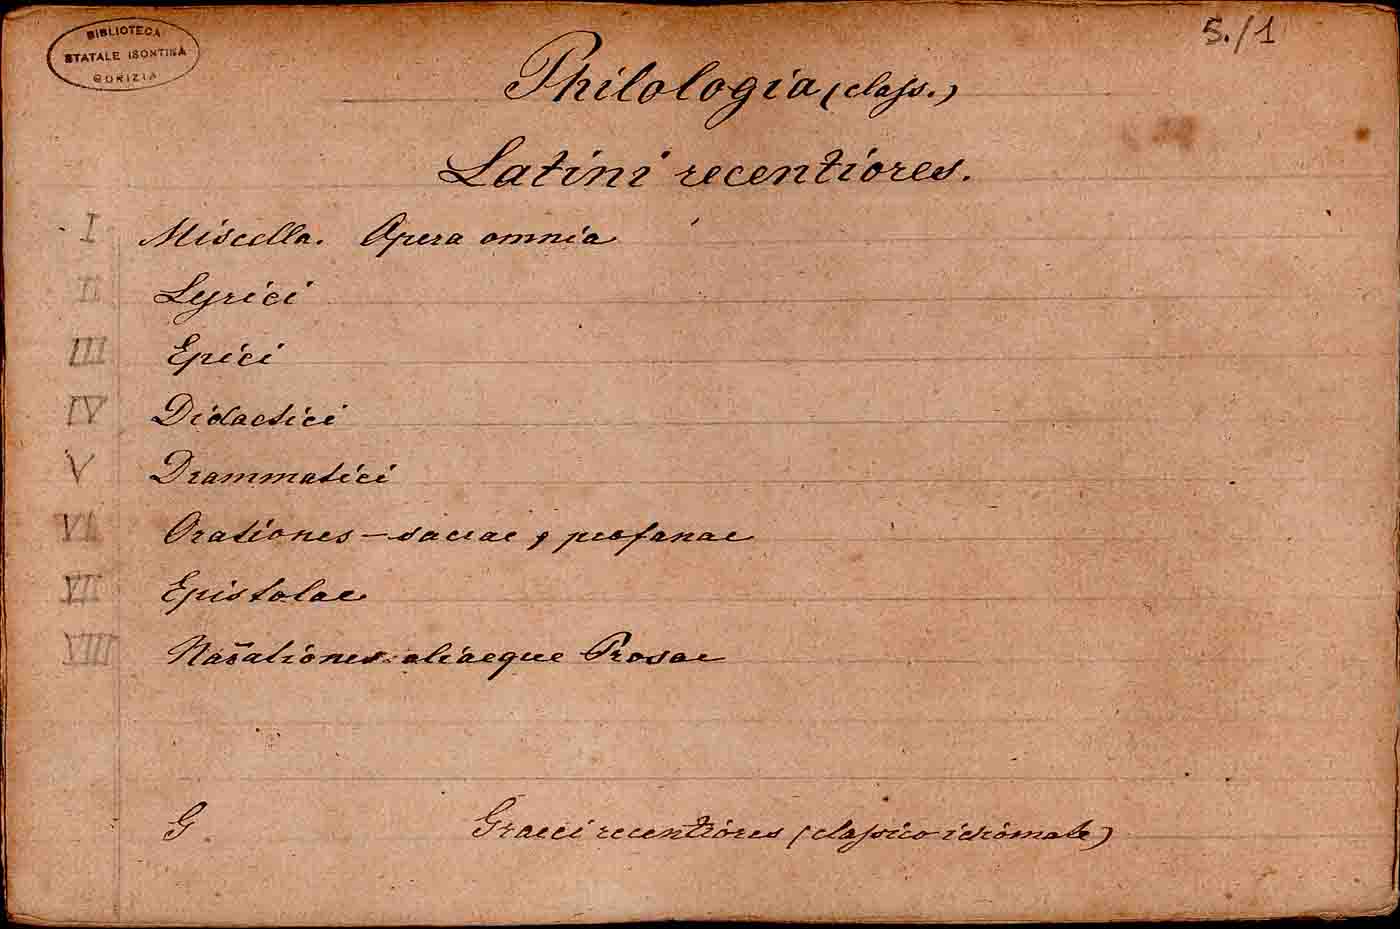 BIBLIOTECA
STATALE ISONTINA
GORIZIA
S./1
Philologia (class.)
Latini recentiores.
I Miscella. Opera omnia
II Lyrici
III Epici
IV Didactici
V Drammatici
VI Orationes – sacrae, profanae
VII Epistolae
VIII Narrationes aliaeque Prosae
G Graeci recentiores (classico idiomate)